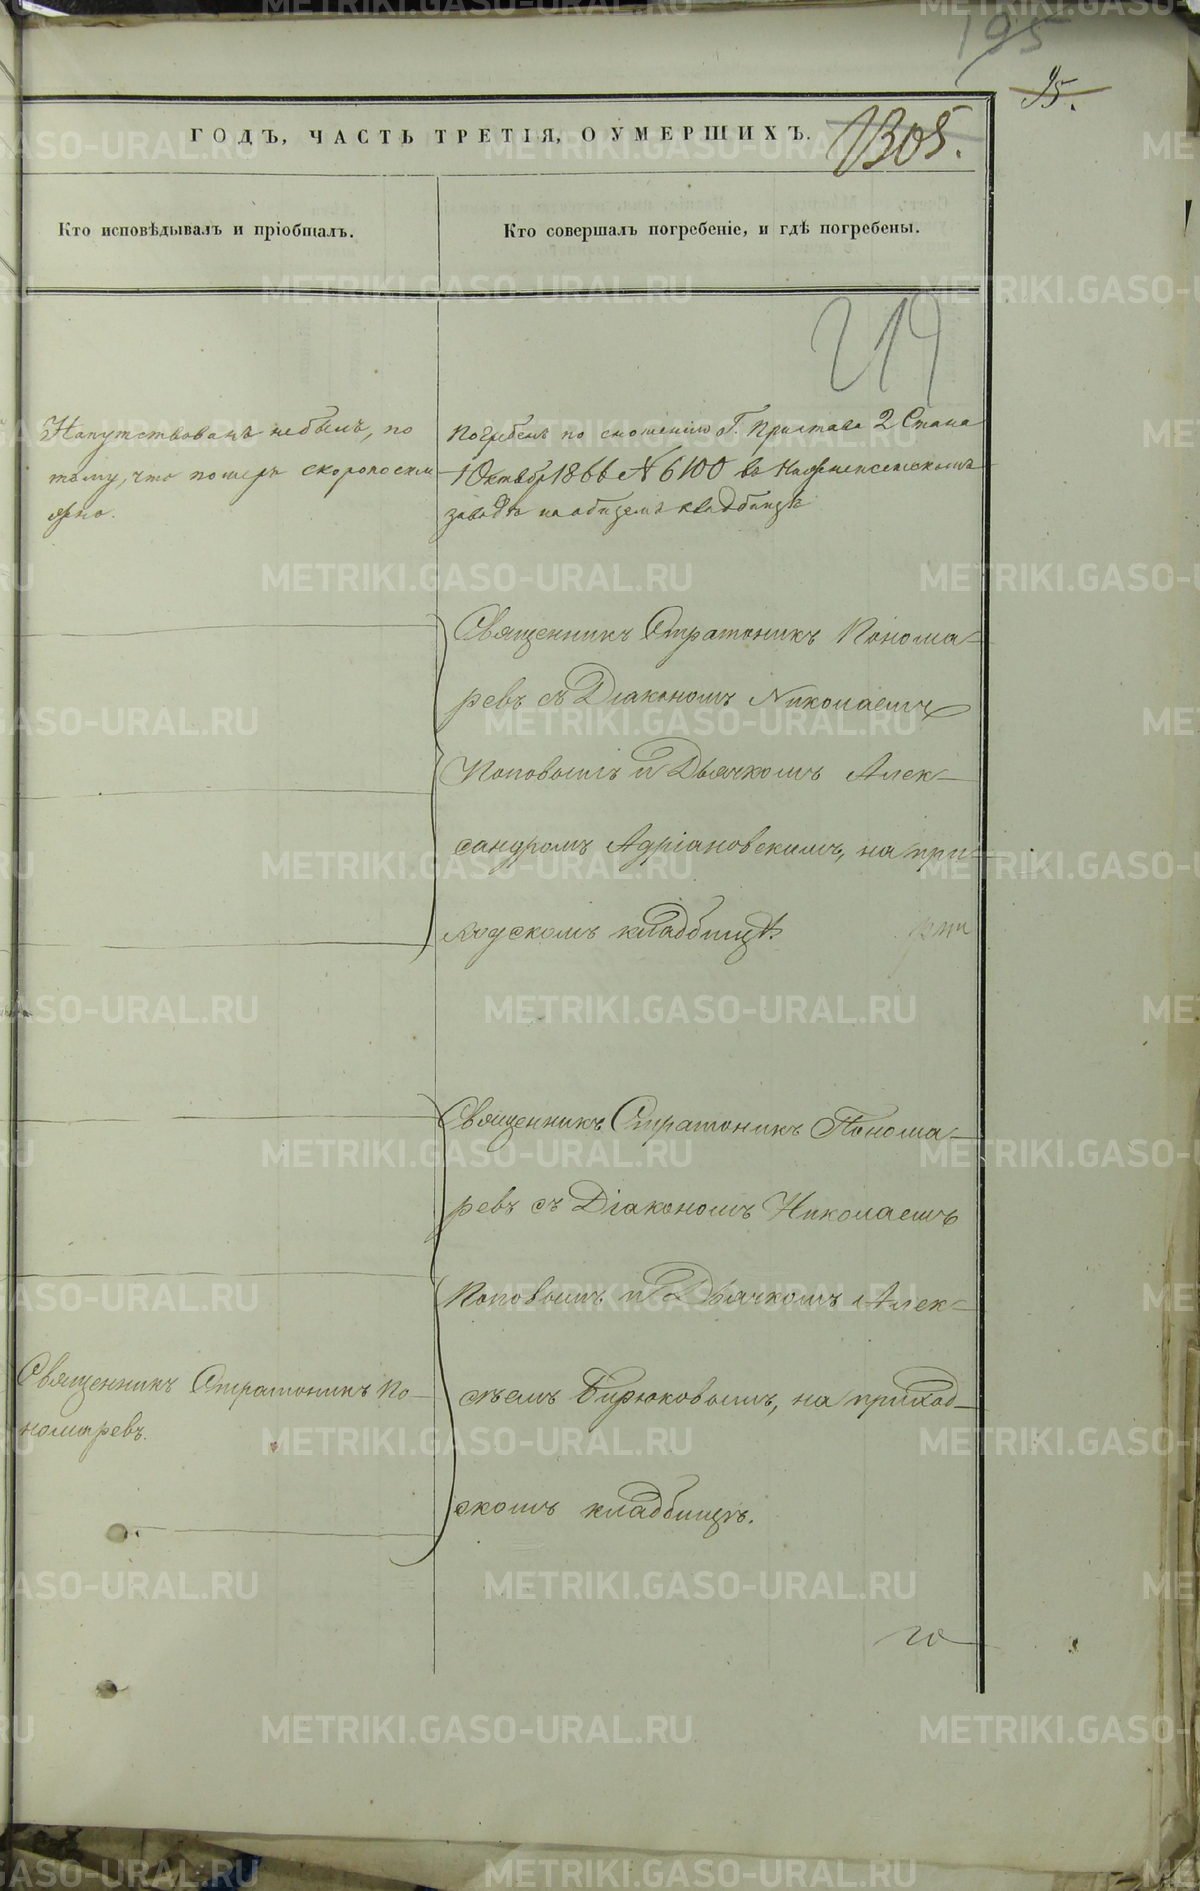 195
95.
ГОДЪ, ЧАСТЬ ТРЕТІЯ, О УМЕРШИХЪ.
1305.
Кто исповѣдывалъ и пріобщалъ.
Кто совершалъ погребеніе, и гдѣ погребены.
219
Напутствованъ небылъ, по
тому, что померъ скоропости
жно.
Погребенъ по сношенію Г. Пристава 2 Стана
1 Октябр 1866 № 6100 въ заводѣ на общемъ кладбищѣ
Священникъ Стратоникъ Понома-
ревъ съ Діакономъ Николаемъ
Поповымъ и Дьячкомъ Алек-
сандромъ Адріановскимъ, на при-
ходскомъ кладбищѣ.
Священникъ Стратоникъ Понома-
ревъ съ Діакономъ Николаемъ
Поповымъ и Дьячкомъ Алек-
сѣемъ Бирюковымъ, на приход-
скомъ кладбищѣ.
Священникъ Стратоникъ По-
номаревъ.
METRIKI.GASO-URAL.RU